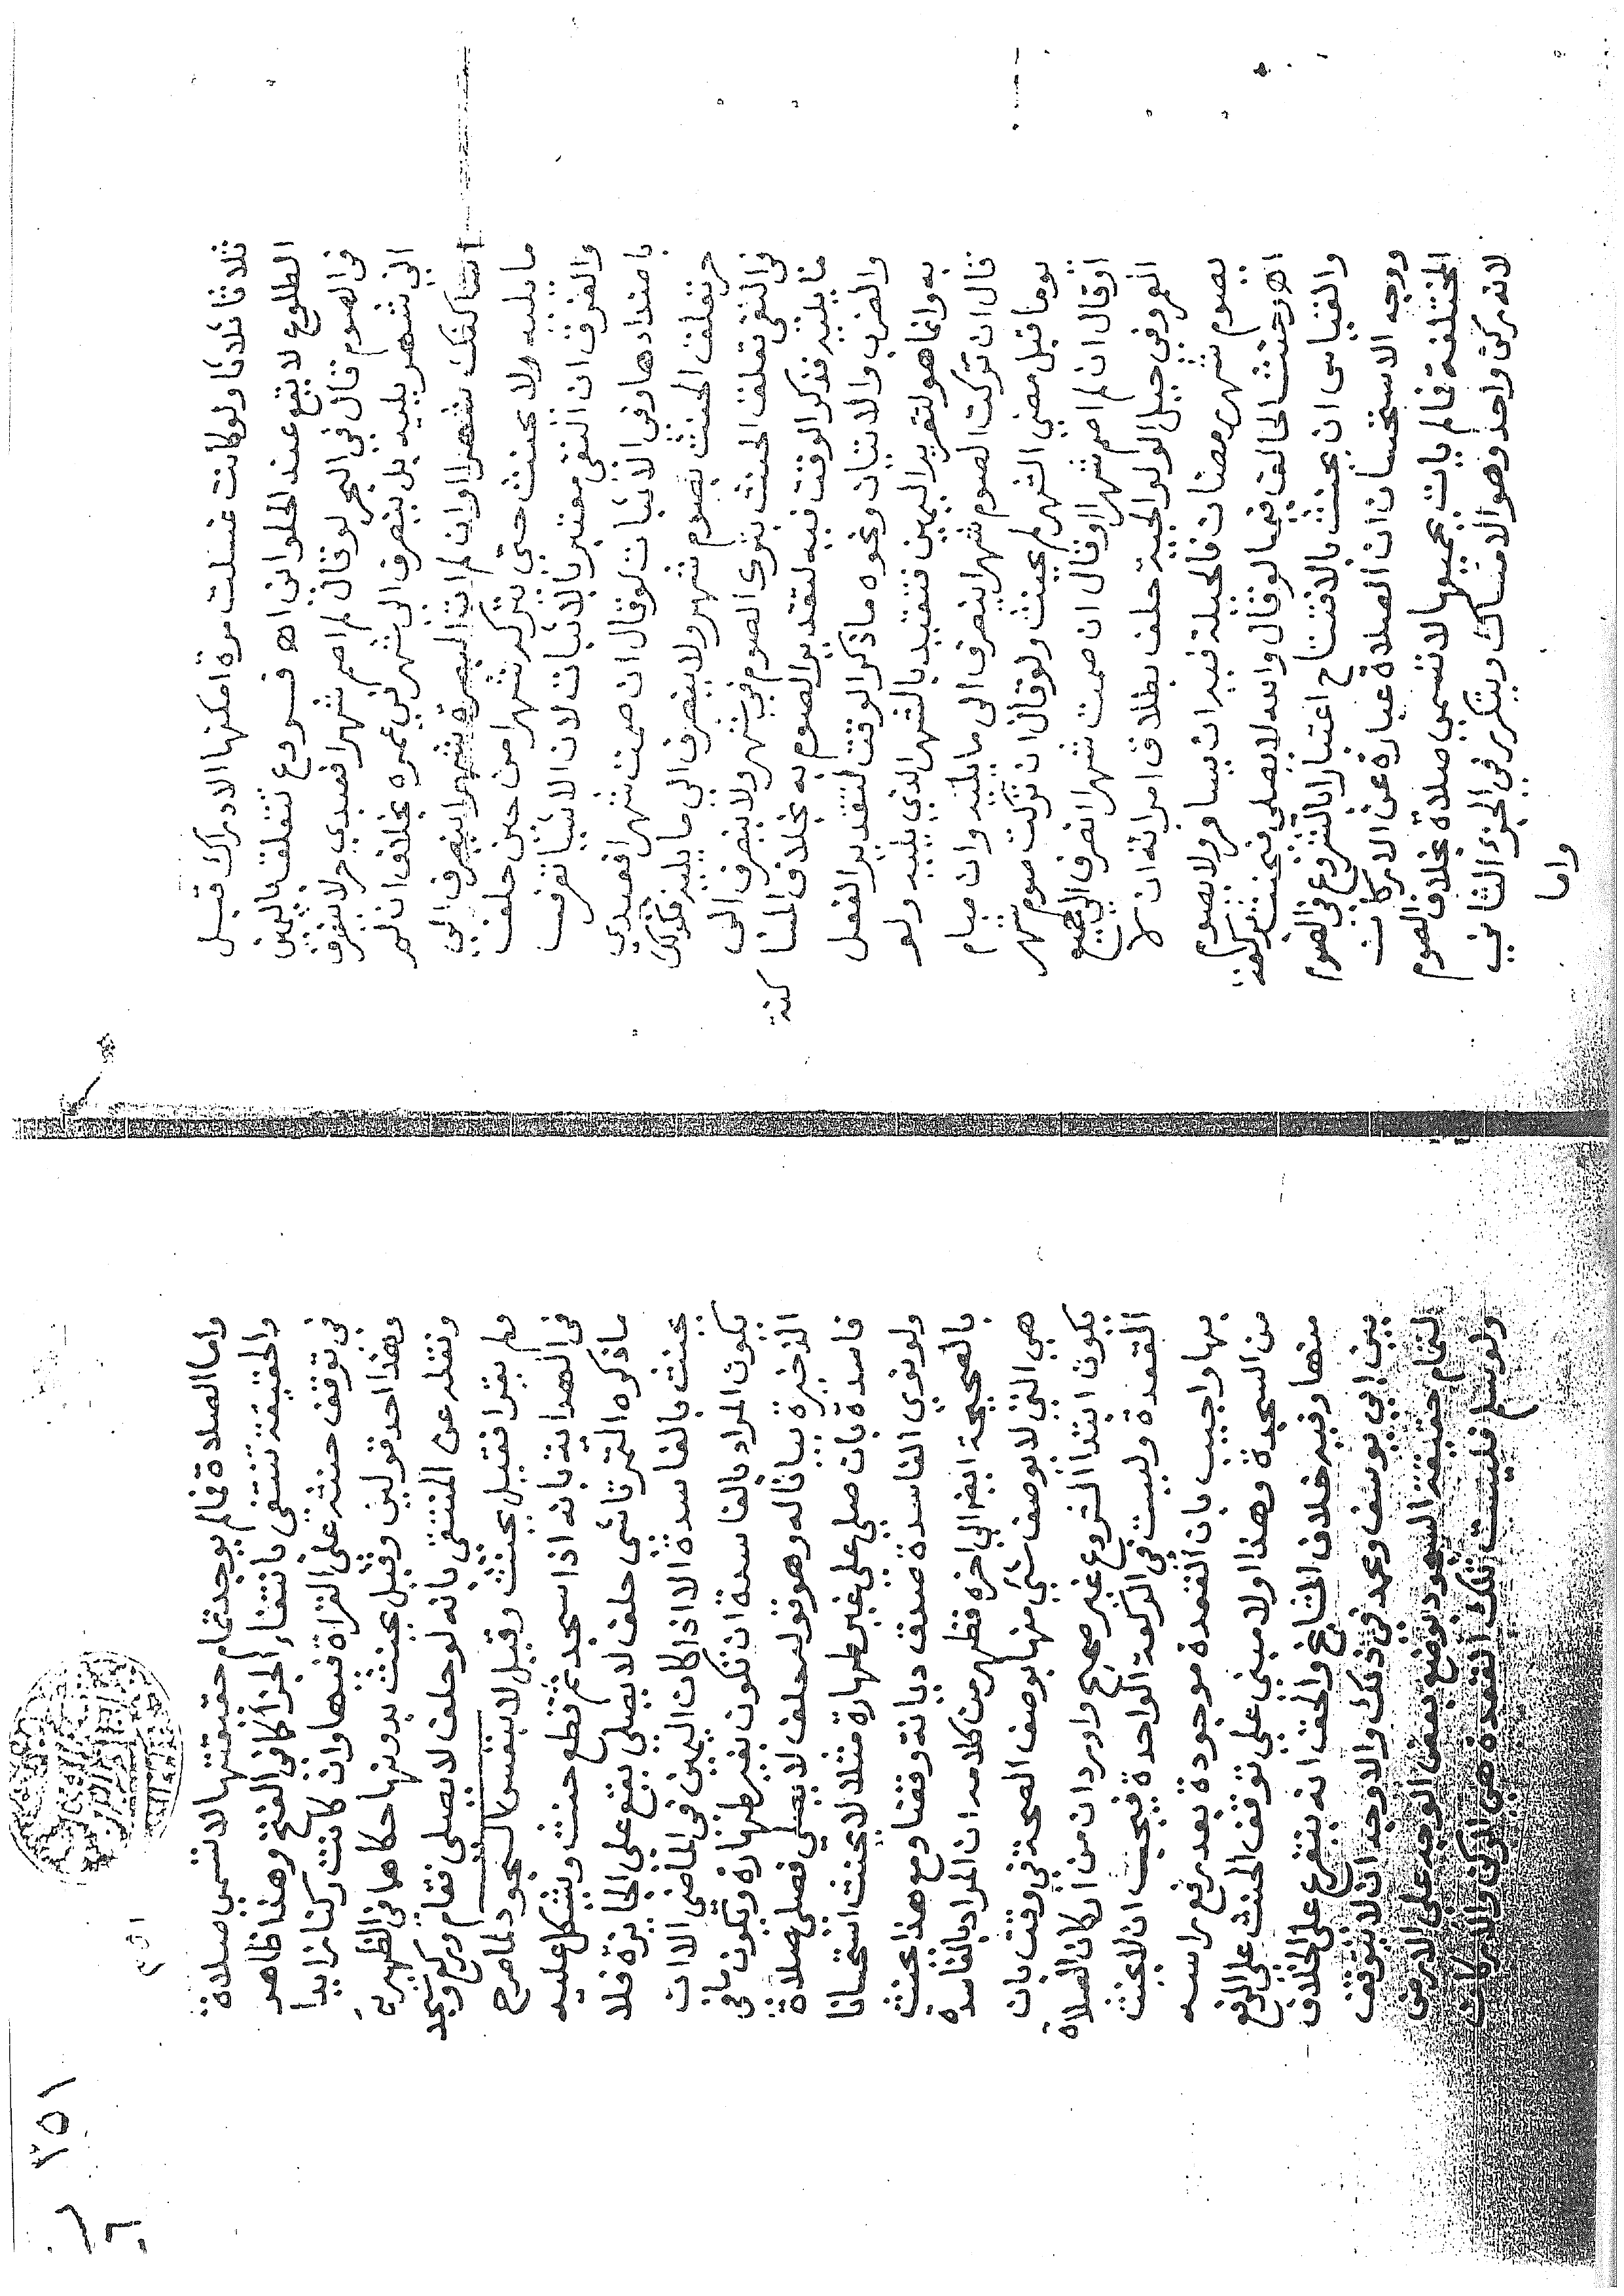 ثلاثا ثلاثا ولو كانت غسلت مرة امكنها الادراك قبل
الطلوع لا يقع عند الحلواني اه فروع تتعلق باليمين
في الصوم قال في البحر لو قال لم اصم شهرا فعبدي حر لا ينصرف
الى شهر يليه بل ينصرف الى شهر في عمره بخلاف ان لم
اساكنك شهرا او ان لم ات البصرة شهرا ينصرف الى
ما يليه ولا يحنث حتى يترك شهرا من حين حلف
والفرق ان النفي معتبر بالاثبات لان الاشيا تعرف
باضدادها وفي الاثبات لو قال ان صمت شهرا فعبدي
حر تعلق الحنث بصوم شهر ولا ينصرف الى ما يليه فكذلك
في النفي تعلق الحنث بترك الصوم في شهر ولا ينصرف الى
ما يليه فذكر الوقت فيه لتقدير الصوم به بخلاف المساكنة
والضرب والاتيان ونحوه ما ذكر الوقت لتقدير الفعل
به وانما هو لتقرير اليمين فتتقيد بالشهر الذي يليه ولو
قال ان تركت الصوم شهرا ينصرف الى ما يليه وان صام
يوما قبل مضي الشهر لم يحنث ولو قال ان تركت صوم شهر
او قال ان لم اصم شهرا او قال ان صمت شهرا انصرف الى جميع
العمر وفي حيل الولوالجية حلف بطلاق امراته ان لا
يصوم شهر رمضان فالحيلة فيه ان يسافر ولا يصوم
اه وحنث الحالف فيما لو قال والله لا يصلي فيحنث بركعة
والقياس ان يحنث بالافتتاح اعتبارا بالشروع في الصوم
ووجه الاستحسان ان الصلاة عبارة عن الاركان
المختلفة فما لم يات بجميعها لا تسمى صلاة بخلاف الصوم
لانه ركن واحد وهو الامساك ويتكرر في الجزء الثاني
واما
٣٥١
واما الصلاة فما لم يوجد تمام حقيقتها لا تسمى صلاة
والحقيقة تنتفي بانتفاء الجزا كما في الفتح وهذا ظاهر
في توقف حنثه على القراة فيها وان كانت ركنا زايدا
وهذا احد قولين وقيل يحنث بدونها حكاهما في الظهيرية
ونقله عن المنتقى بانه لو حلف لا يصلي فقام وركع وسجد
ولم يقرا فقيل يحنث وقيل لا بنفس السجود لما صرح
في الهداية بانه اذا سجد ثم قطع حنث ويشكل عليه
ما ذكره التمرتاشي حلف لا يصلي يقع على الجايزة فلا
يحنث بالفاسدة الا اذا كان اليمين في الماضي الا ان
يكون المراد بالفاسدة ان تكون بغير طهارة ويكون ما في
الذخيرة بيانا له وهو قوله حلف لا يصلي فصلى صلاة
فاسدة بان صلى على غير طهارة مثلا لا يحنث استحسانا
ولو نوى الفاسدة صدق ديانة وقضا ومع هذا يحنث
بالصحيحة ايضا الى اخره فظهر من كلامه ان المراد بالفاسدة
هي التي لا يوصف شي منها بوصف الصحة في وقت بان
يكون ابتدا الشروع غير صحيح واورد ان من اركان الصلاة
القعدة وليست في الركعة الواحدة فيجب ان لا يحنث
بها واجيب بان القعدة موجودة بعد رفع راسه
من السجدة وهذا اولا مبني على توقف الحنث على الرفع
منها وفيه خلاف المشايخ والحق انه يتفرع على الخلاف
بين ابي يوسف ومحمد في ذلك والاوجه ان لا يتوقف
لتمام حقيقة السجود بوضع بعض الوجه على الارض
ولو سلم فليست تلك القعدة هي الركن والاركان